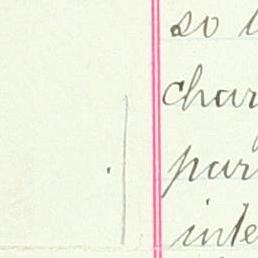 so
char
par
inte